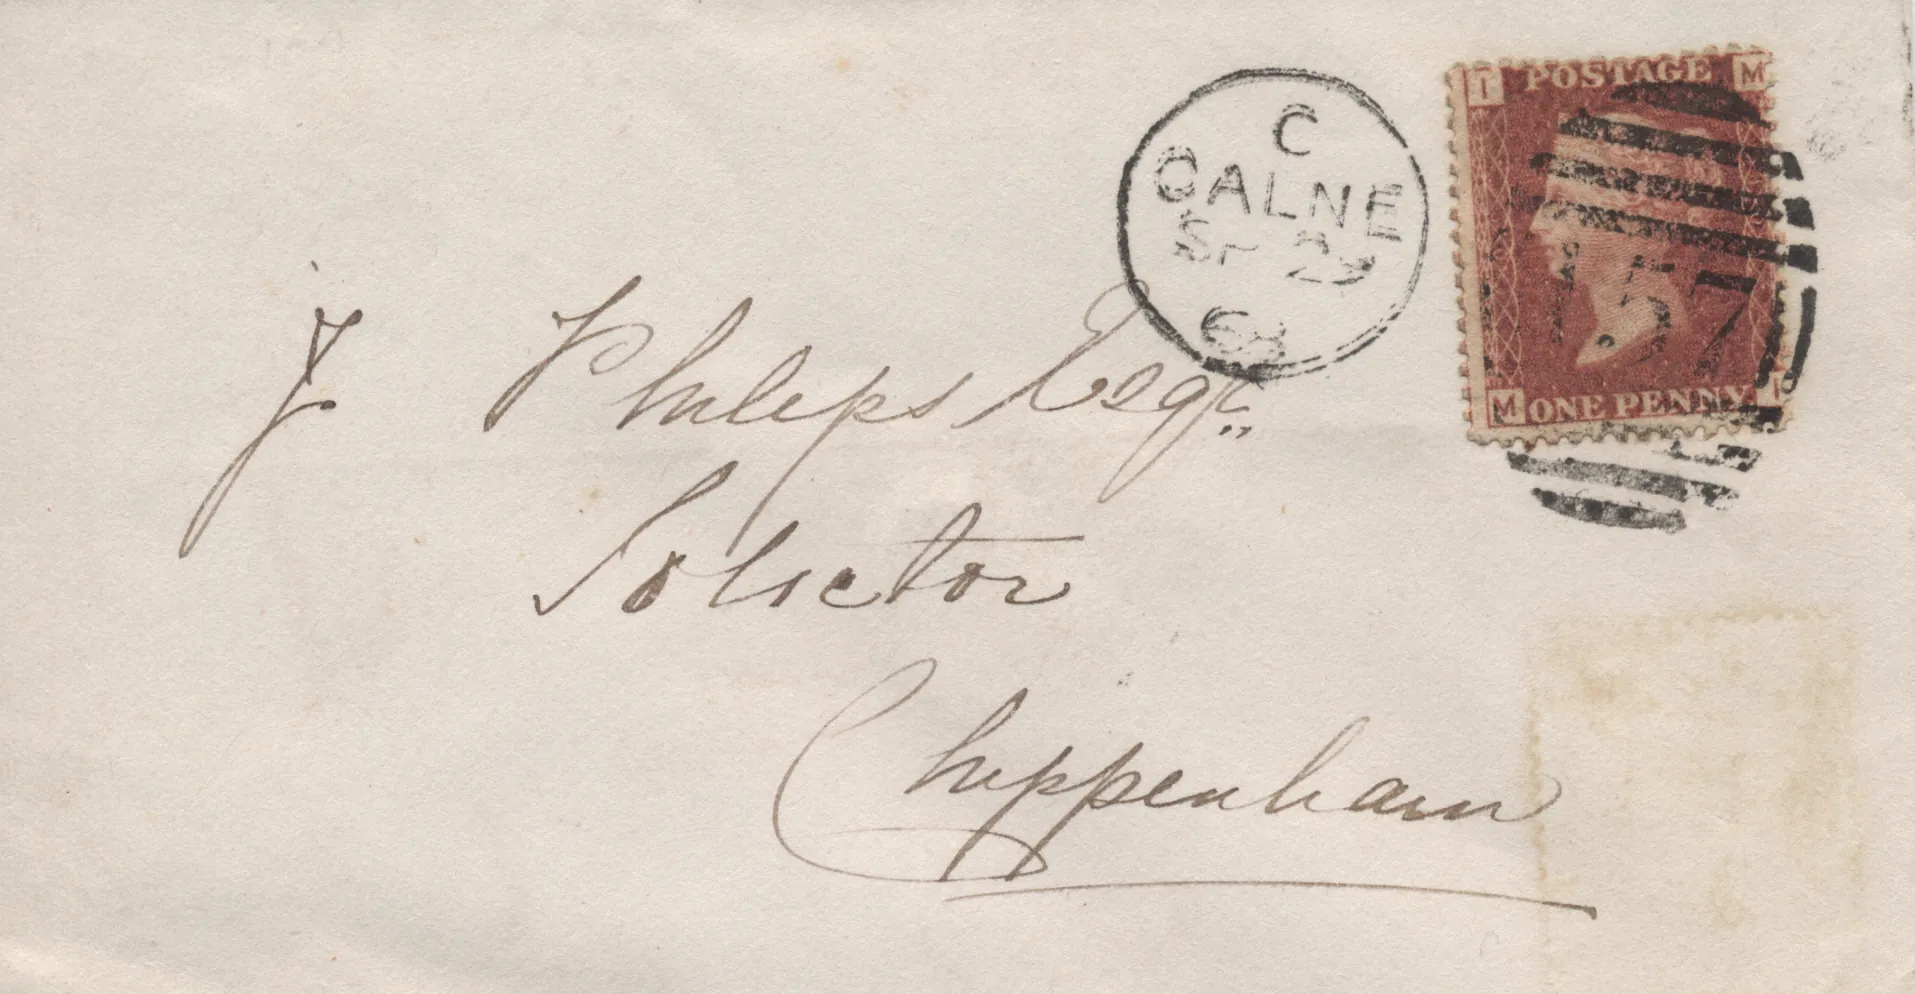 C
CALNE
SP 29
I POSTAGE M
57
M ONE PENNY I
J Philips Esqr
Solicitor
Chippenham